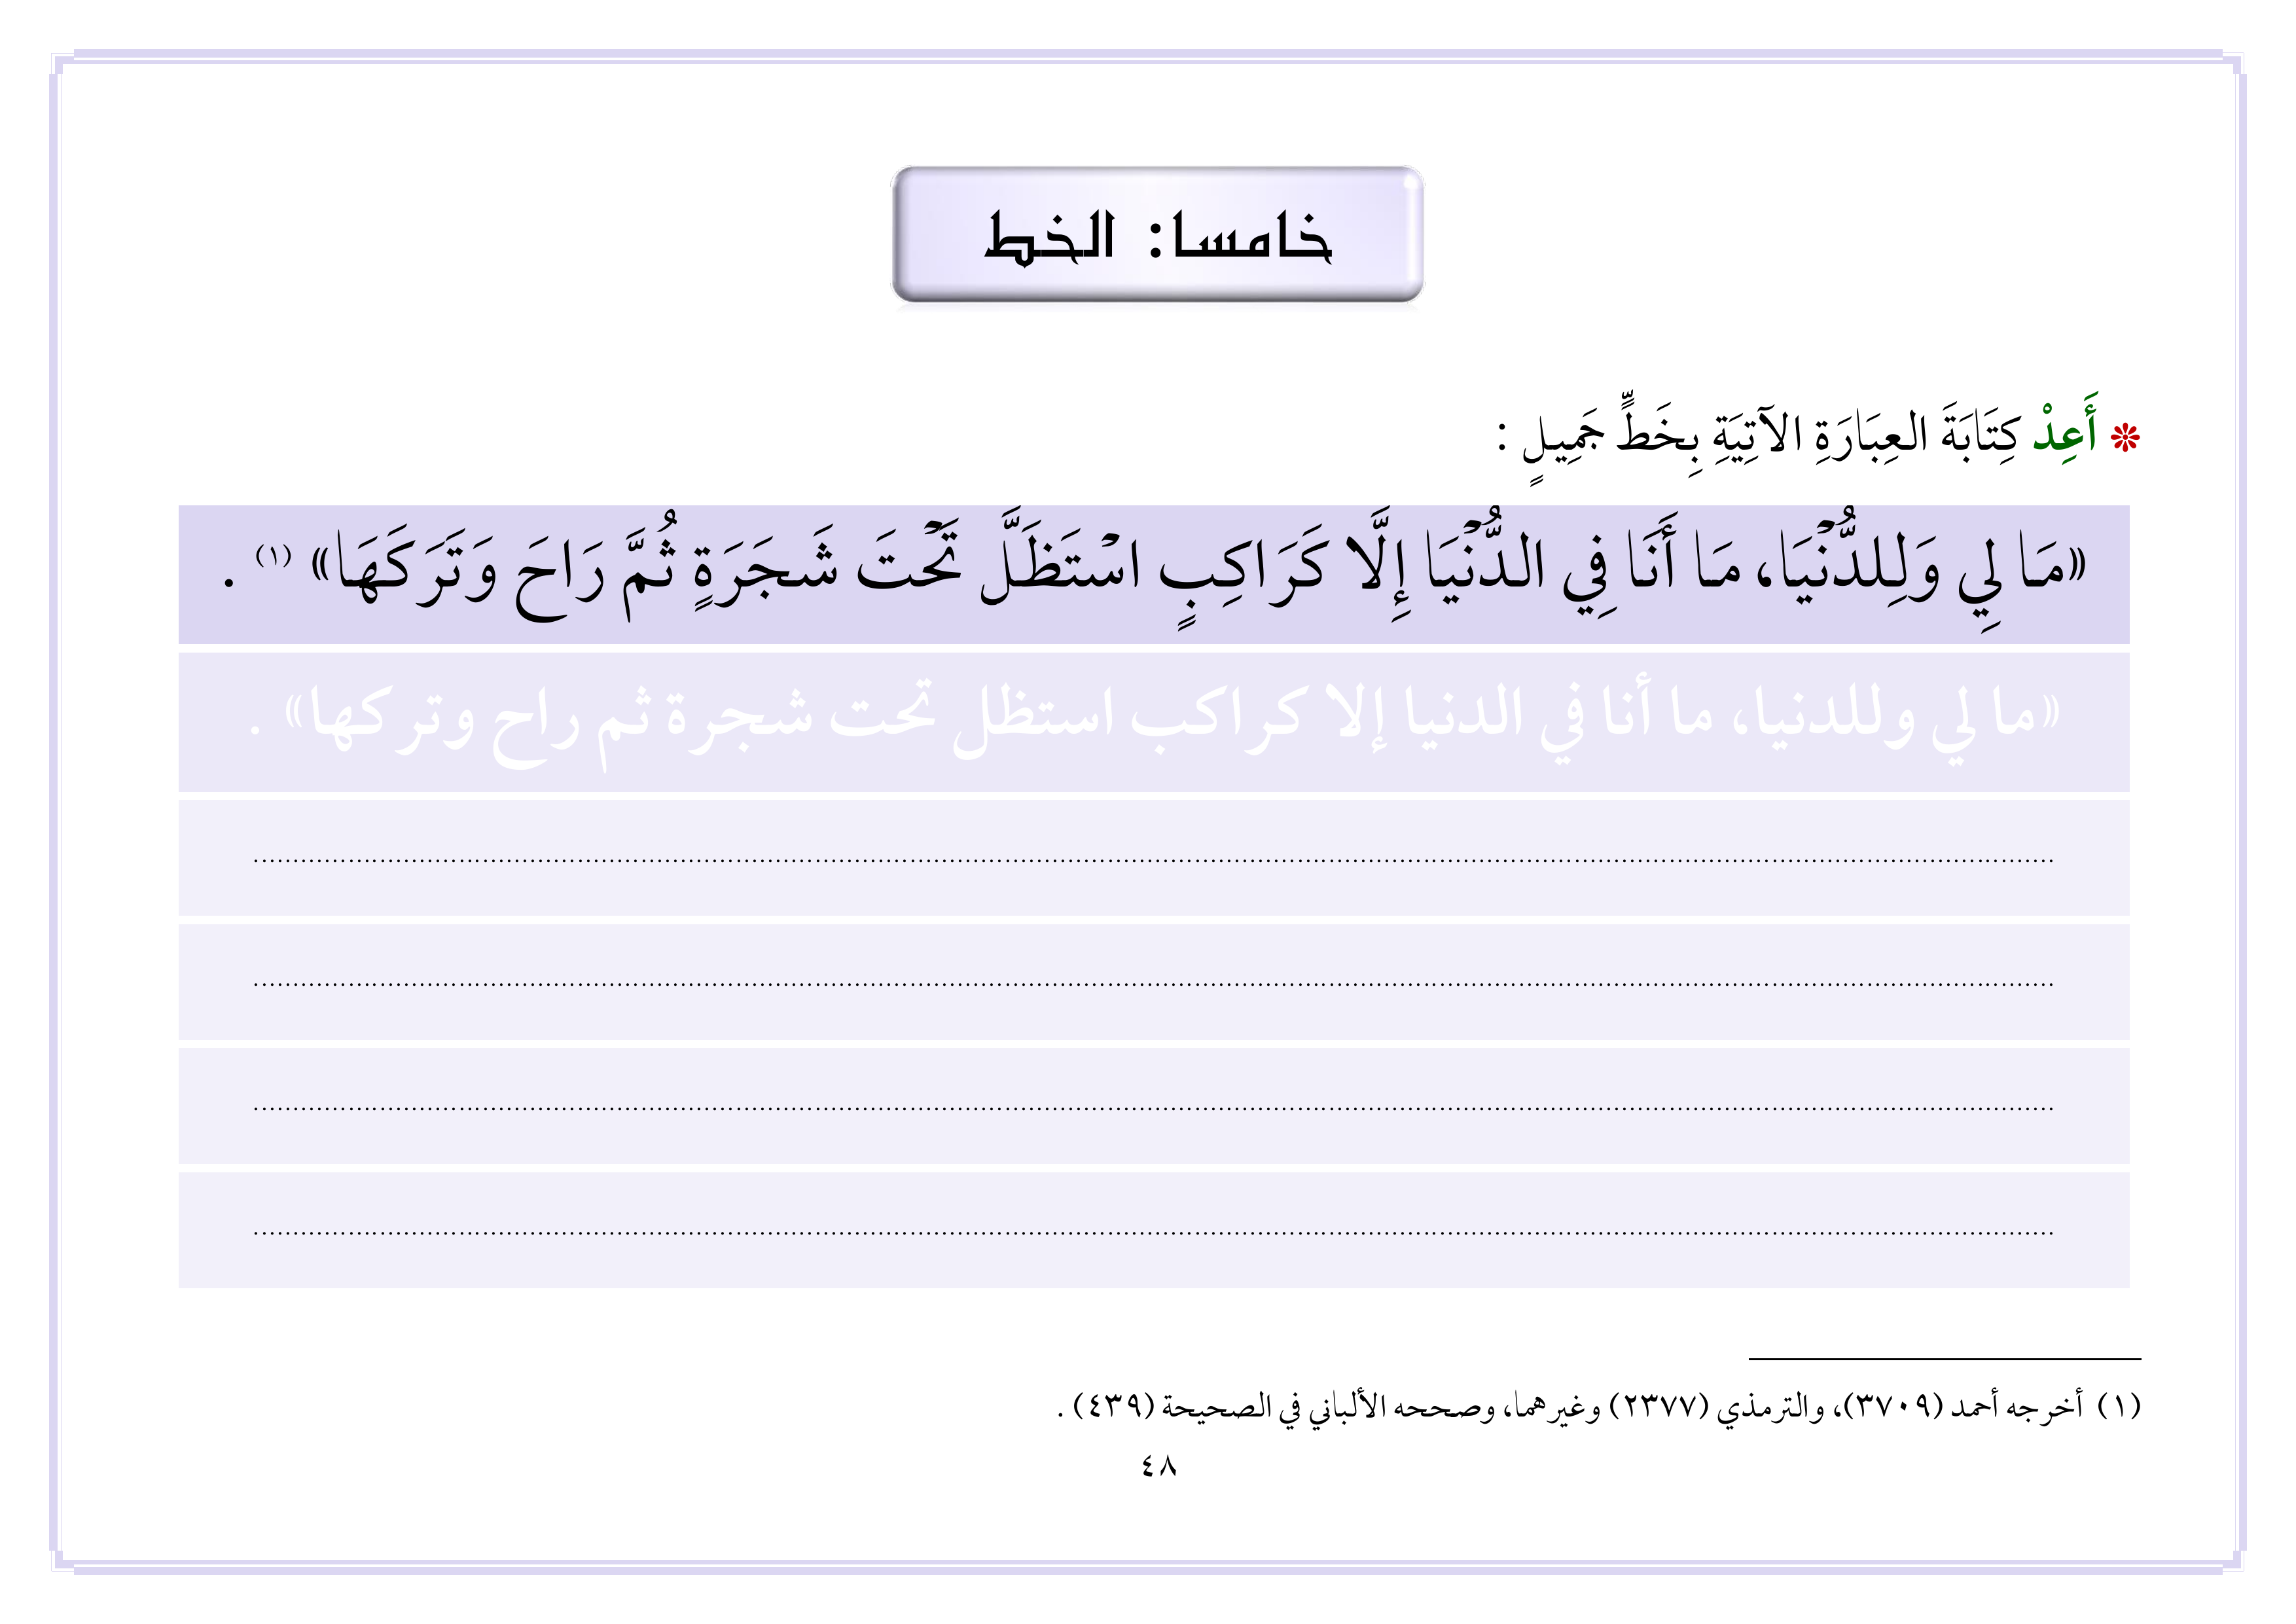 خامسا: الخط
❊ أَعِدْ كِتَابَةَ العِبَارَةِ الآتِيَةِ بِخَطٍّ جَمِيلٍ :
«مَا لِي وَلِلدُّنْيَا، مَا أَنَا فِي الدُّنْيَا إِلَّا كَرَاكِبٍ اسْتَظَلَّ تَحْتَ شَجَرَةٍ ثُمَّ رَاحَ وَتَرَكَهَا» (١) .
«ما لي وللدنيا، ما أنا في الدنيا إلا كراكب استظل تحت شجرة ثم راح وتركها» .
(١) أخرجه أحمد (٣٧٠٩)، والترمذي (٢٣٧٧) وغيرهما، وصححه الألباني في الصحيحة (٤٣٩) .
٤٨